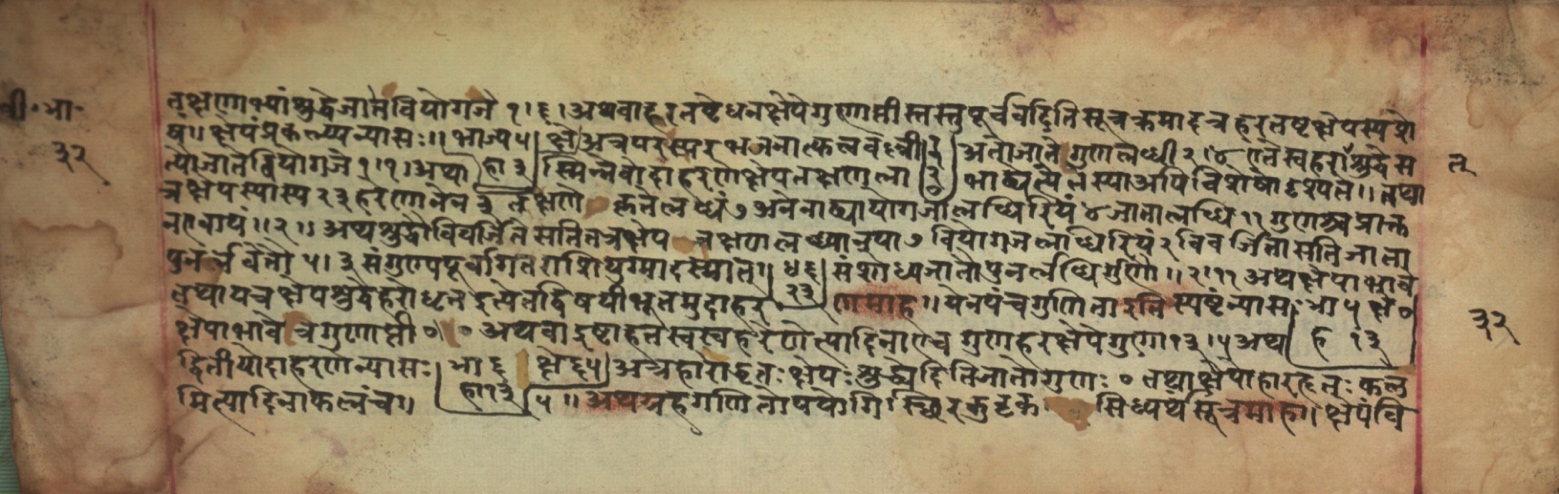 वी॰ भा॰
३२
तक्षणाभ्यां शुद्धे जाते वियोगजे १।६। अथवा हरतष्टे धनक्षेपे गुणाप्ती स्तस्तु पूर्ववदिति सूत्रक्रमादत्र हरतष्टक्षेपस्य प्रो
ष॥ क्षेपं प्रकल्प्य न्यासः॥ भाज्य ५ क्षे अत्र परस्परभजनात्फलवल्ली अतो जाते गुणलब्धी २।४ एते स्वहराशुद्धे म
त्या जाते वियोगजे १।१। अथा हा ३ स्मिन्नेवोदाहरणे क्षेपतक्षणला भाढ्येत्येतस्या अपि विशेषो दृश्यते॥ तथा
त्र क्षेपस्यास्य २३ हरेणानेन ३ तक्षणे कृते लब्धं ७ अनेनाढ्या योगजा लब्धिरियं ४ जाता लब्धिः ११ गुणश्च प्राक्त
न एवायं॥२॥ अथ शुद्धौ विवर्जितेति सति तत्र क्षेप तक्षणलब्ध्यानया ७ वियोगजलब्धिरियं १ विवर्जिता सति जाता
पुनर्लवेतो ५।३ संगुणपूर्वगितराशियुग्मादस्मात् ४६ २३ संशोध्य जातौ पुनर्लब्धिगुणौ॥ २।११ अथ क्षेपाभावे
तथा यत्र क्षेपशुद्धेहरोधृत इत्येतद्विषयीभूतमुदाहर णमाह॥ येन पंचगुणिता इति स्पष्टं न्यासः भा ५ क्षे ०
क्षेपाभावे च गुणाप्ती ०।० अथवा इष्टाहतस्वस्वहरेणेत्यादिनाथ च गुणहरक्षेपे गुणा १३।५ अथ ह १३
द्वितीयोदाहरणे न्यासः भा ५ क्षे ६५ अत्र हारोद्धृतः क्षेपः शुद्ध्येदिति जातो गुणः ० तथा क्षेपो हारहृतः फल
मित्यादिना फलं च॥ हा १३ ५॥ अथ ग्रहगणितोपयोगि स्थिरकुट्टक सिध्यर्थं सूत्रमाह। क्षेपं वि
३२